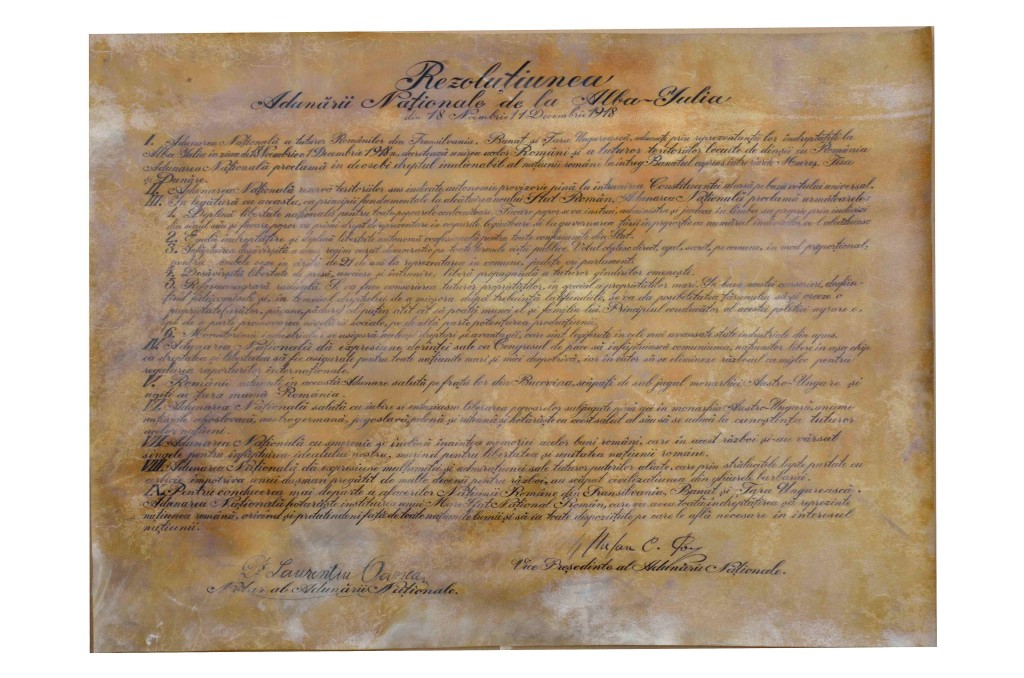 Rezoluțiunea
Adunării Naționale de la Alba-Iulia
din 18 Noembrie 11 Decembrie 1918
I. Adunarea Națională a tuturor Românilor din Transilvania, Banat și Țara Ungurească, adunați prin reprezentanții lor îndreptățiți la
Alba Iulia în ziua de 18 Noembrie 1 Decembrie 1918, decretează unirea acelor Români și a tuturor teritoriilor locuite de dînșii cu România
Adunarea Națională proclamă îndeosebi dreptul inalienabil al națiunii române la întreg Banatul cuprins între rîurile Mureș, Tisa
și Dunăre.
II. Adunarea Națională rezervă teritoriilor sus indicate autonomie provizorie pînă la întrunirea Constituantei aleasă pe baza votului universal.
III. În legătură cu aceasta, ca principii fundamentale la alcătuirea noului Stat Român, Adunarea Națională proclamă următoarele:
1. Deplină libertate națională pentru toate popoarele conlocuitoare. Fiecare popor se va instrui, administra și judeca în limba sa proprie prin indivizi
din sînul său și fiecare popor va primi drept de reprezentare în corpurile legiuitoare și la guvernarea țării în proporție cu numărul indivizilor ce-l alcătuesc
2. Egală îndreptățire și deplină libertate autonomă confesională pentru toate confesiunile din Stat.
3. Înfăptuirea desăvîrșită a unui regim curat democratic pe toate terenele vieții publice. Votul obștesc direct, egal, secret, pe comune, în mod proporțional,
pentru ambele sexe, în vîrstă de 21 de ani la reprezentarea în comune, județe ori parlament.
4. Desăvîrșită libertate de presă, asociere și întrunire, liberă propagandă a tuturor gîndirilor omenești.
5. Reforma agrară radicală. Se va face conscrierea tuturor proprietăților, în special a proprietăților mari. În baza acestei conscrieri, desființînd
fideicomisele și, în temeiul dreptului de a micșora după trebuință latifundiile, se va da posibilitatea țăranului să-și creeze o
proprietate (arător, pășune, pădure) cel puțin atît cît să poată munci el și familia lui. Principiul conducător al acestei politici agrare e,
pe de o parte promovarea nivelării sociale, pe de altă parte potențarea producțiunii.
6. Muncitorimei industriale i se asigură aceleași drepturi și avantagii, care sînt legiferate în cele mai avansate state industriale din apus.
IV. Adunarea Națională dă expresiune dorinței sale ca Congresul de pace să înfăptuiască comuniunea națiunilor libere în așa chip,
ca dreptatea și libertatea să fie asigurate pentru toate națiunile mari și mici deopotrivă, iar în viitor să se elimineze războiul ca mijloc pentru
regularea raporturilor internaționale.
V. Românii adunați în această Adunare salută pe frații lor din Bucovina, scăpați de sub jugul monarhiei Austro-Ungare și
uniți cu țara mumă România.
VI. Adunarea Națională salută cu iubire și entuziasm liberarea popoarelor subjugate pînă aci în monarhia Austro-Ungară, anume
națiunile: cehoslovacă, austrogermană, jugoslavă, polonă și ruteană și hotărăște ca acest salut al său să se aducă la cunoștința tuturor
acelor națiuni.
VII. Adunarea Națională cu smerenie se închină înaintea memoriei acelor bravi români, care în acest război și-au vărsat
sîngele pentru înfăptuirea idealului nostru, murind pentru libertatea și unitatea națiunii române.
VIII. Adunarea Națională dă expresiune mulțumirei și admirațiunei sale tuturor puterilor aliate, care prin strălucitele lupte purtate cu
cerbicie împotriva unui dușman pregătit de multe decenii pentru război, au scăpat civilizațiunea din ghiarele barbariei.
IX. Pentru conducerea mai departe a afacerilor Națiunii Române din Transilvania, Banat și Țara Ungurească,
Adunarea Națională hotărăște instituirea unui Mare Sfat Național Român, care va avea toată îndreptățirea să reprezinte
națiunea română, oricînd și pretutindeni față de toate națiunile lumii și să ia toate dispozițiile pe care le află necesare în interesul
națiunii.
Ștefan C. Pop
Vice Președinte al Adunării Naționale.
Dr Laurențiu Oanea
Notar al Adunării Naționale.